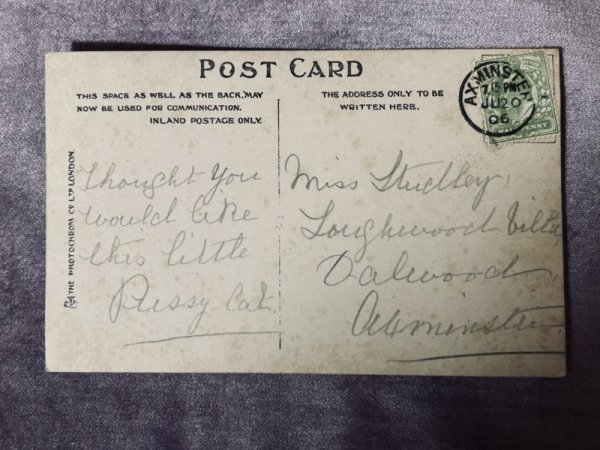 POST CARD
THIS SPACE AS WELL AS THE BACK, MAY
NOW BE USED FOR COMMUNICATION.
INLAND POSTAGE ONLY.
THE ADDRESS ONLY TO BE
WRITTEN HERE.
AXMINSTER
7.15 PM
JU 20
06
THE PHOTOCHROM CO LTD LONDON.
Thought You
would like
this little
Pussy Cat.
Miss Studley
Loughwood Villa
Dalwood
Axminster